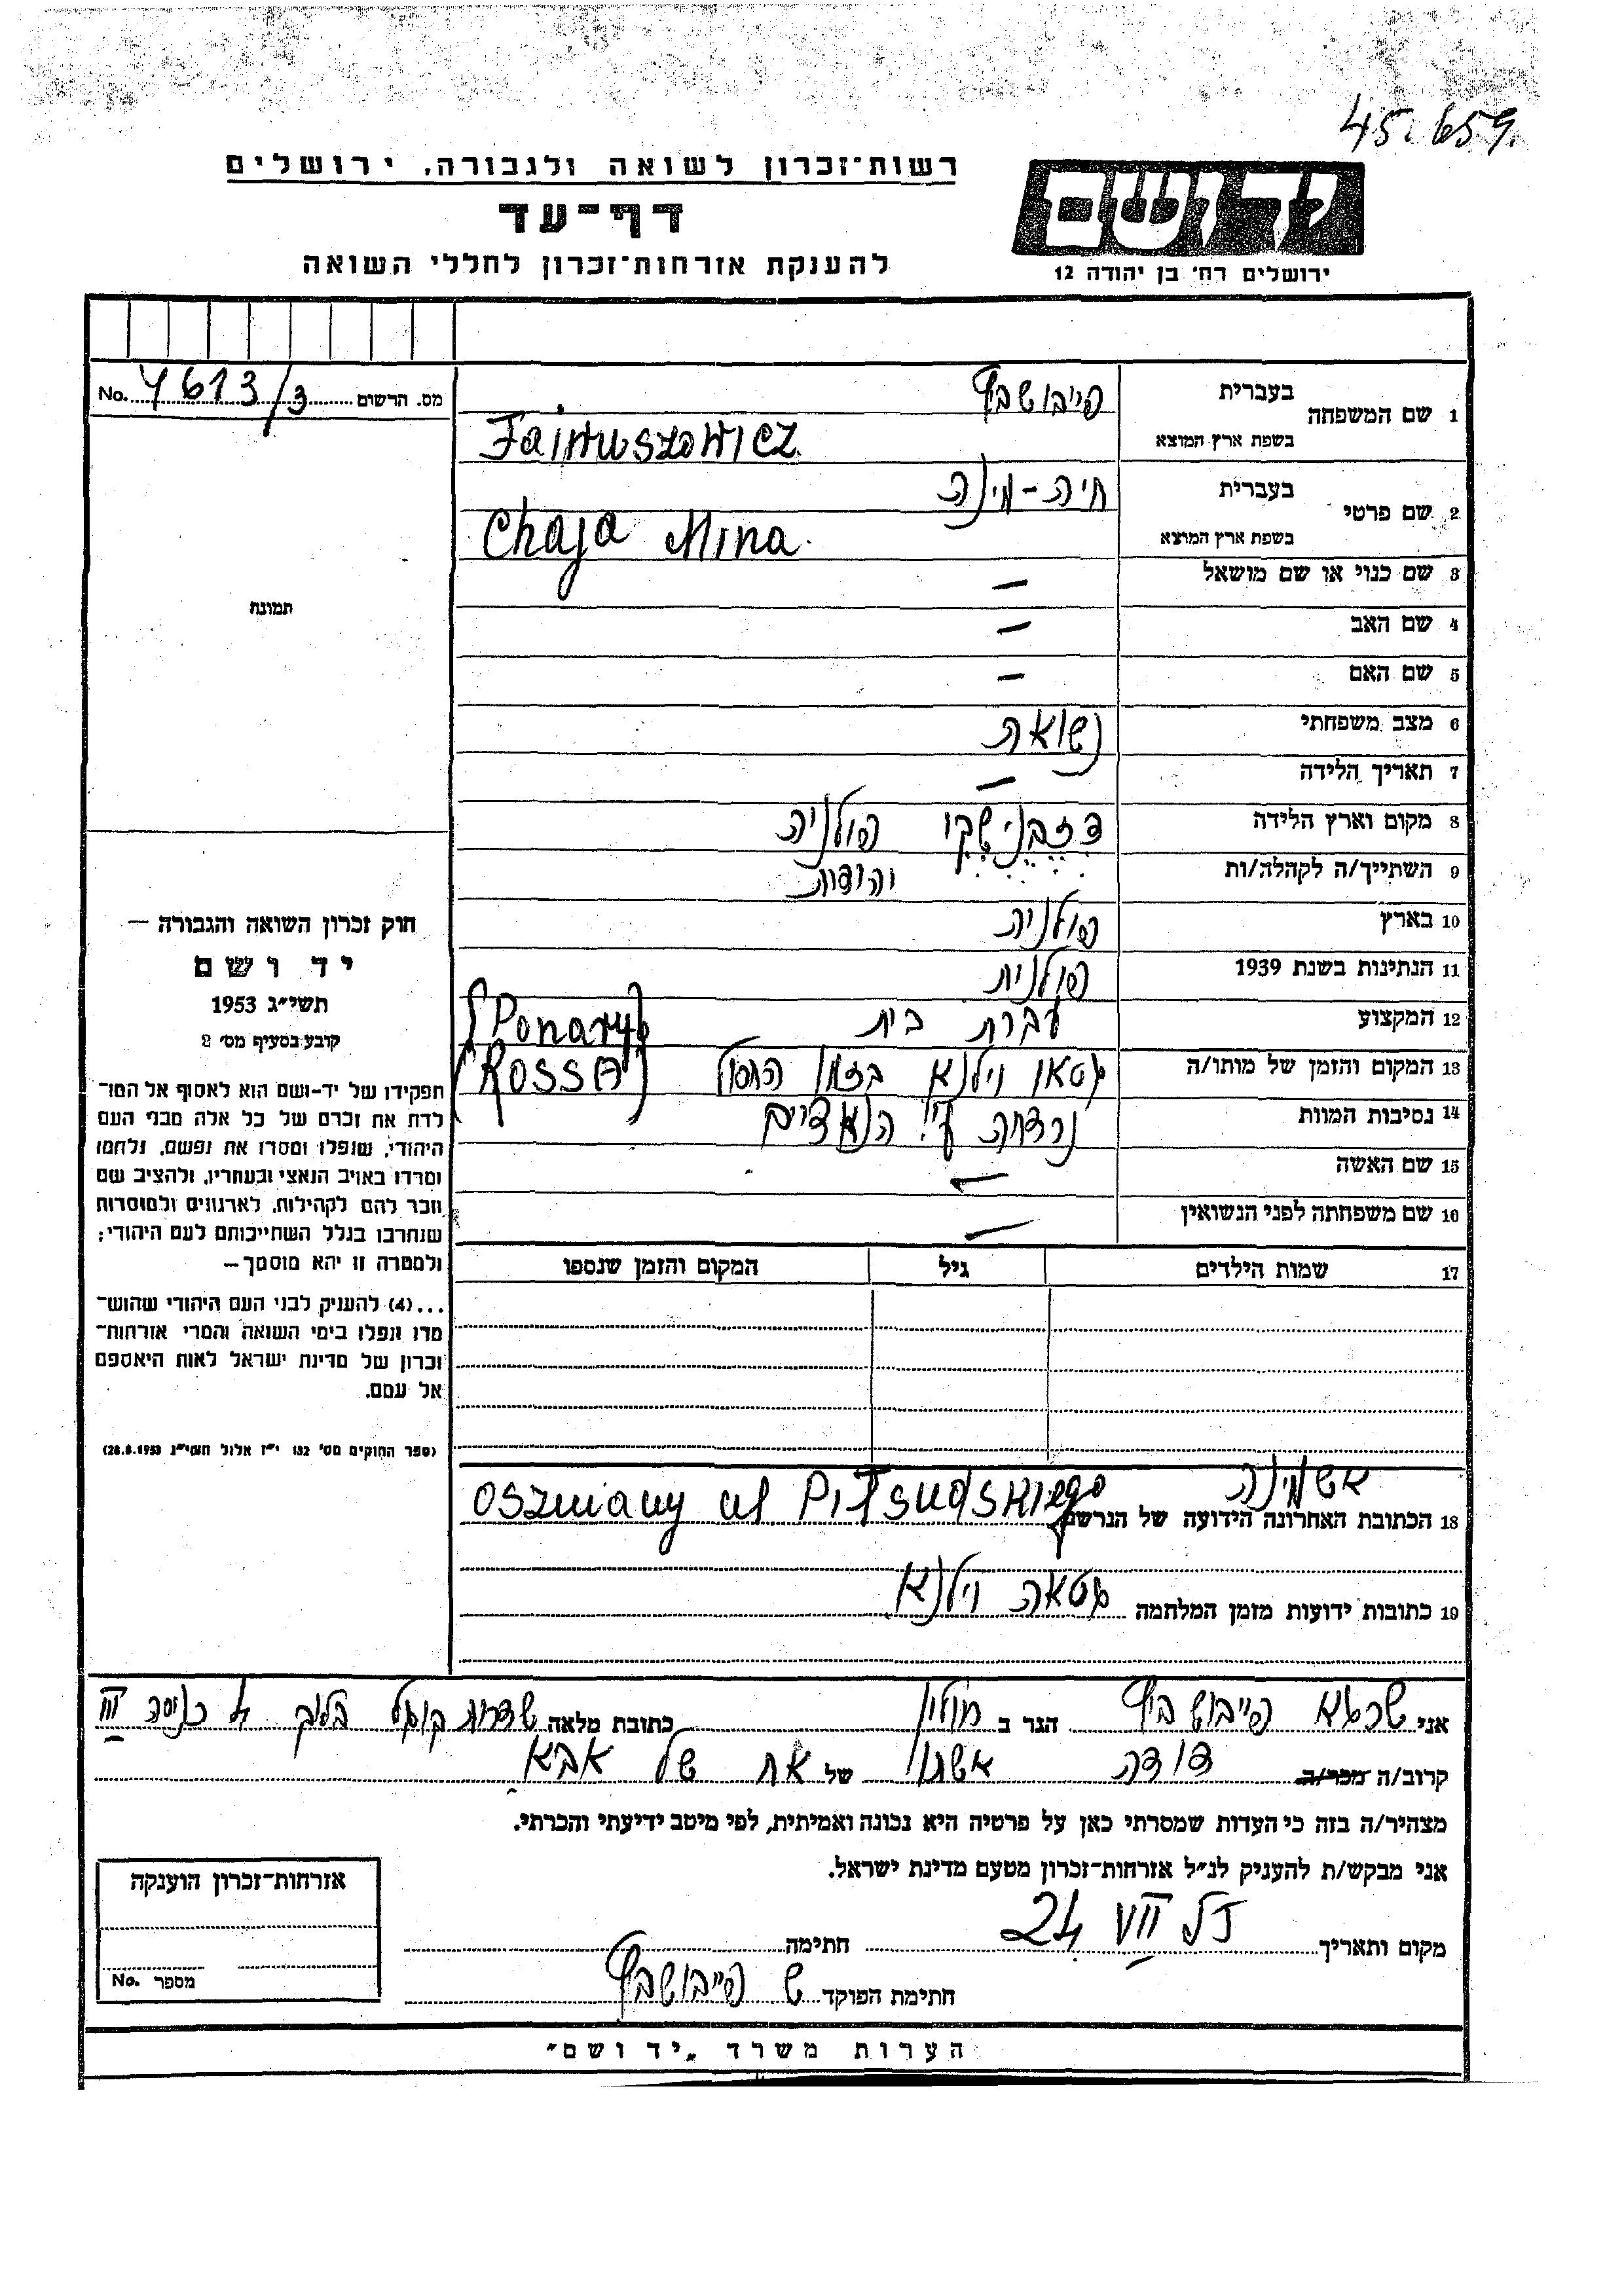 45.659.
רשות־זכרון לשואה ולגבורה, ירושלים
דף־עד
להענקת אזרחות־זכרון לחללי השואה
יד ושם
ירושלים רח' בן יהודה 12
מס. הרשום 7613/3 No.
1 שם המשפחה
בעברית פייבושביץ
בשפת ארץ המוצא Fajwuszowicz
2 שם פרטי
בעברית חיה-מינה
בשפת ארץ המוצא Chaja Mina
3 שם כנוי או שם מושאל —
4 שם האב —
5 שם האם —
6 מצב משפחתי נשואה
7 תאריך הלידה —
8 מקום וארץ הלידה פולניה
9 השתייך/ה לקהלה/ות יהודית
10 בארץ פולניה
11 הנתינות בשנת 1939 פולנית
12 המקצוע עקרת בית
(Ponary)
13 המקום והזמן של מותו/ה גטאו וילנא בזמן החסול
(ROSSA)
14 נסיבות המוות נרצחה ע"י הנאצים
15 שם האשה —
16 שם משפחתה לפני הנשואין —
17 שמות הילדים גיל המקום והזמן שנספו
אשמינה
18 הכתובת האחרונה הידועה של הנרשם Oszmiany ul Piłsudskiego
19 כתובות ידועות מזמן המלחמה גטאה וילנא
תמונה
חוק זכרון השואה והגבורה —
יד ושם
תשי״ג 1953
קובע בסעיף מס׳ 2
תפקידו של יד-ושם הוא לאסוף אל המו־
לדת את זכרם של כל אלה מבני העם
היהודי, שנפלו ומסרו את נפשם, נלחמו
ומרדו באויב הנאצי ובעוזריו, ולהציב שם
וזכר להם לקהילות, לארגונים ולמוסדות
שנחרבו בגלל השתייכותם לעם היהודי;
ולמטרה זו יהא מוסמך —
...(4) להעניק לבני העם היהודי שהוש־
מדו ונפלו בימי השואה והמרי אזרחות־
זכרון של מדינת ישראל לאות היאספם
אל עמם.
(ספר החוקים מס׳ 132 י״ז אלול תשי״ג 28.8.1953)
אני פייבושביץ הגר ב חולון כתובת מלאה שדרות קוגל בלוק 4 כניסה III
קרוב/ה מכר/ה דודה אשתו של אח של אבא
מצהיר/ה בזה כי העדות שמסרתי כאן על פרטיה היא נכונה ואמיתית, לפי מיטב ידיעתי והכרתי.
אני מבקש/ת להעניק לנ״ל אזרחות-זכרון מטעם מדינת ישראל.
מקום ותאריך 24 VII חתימה
חתימת הפוקד ש פייבושביץ
אזרחות-זכרון הוענקה
מספר No.
הערות משרד „יד ושם״